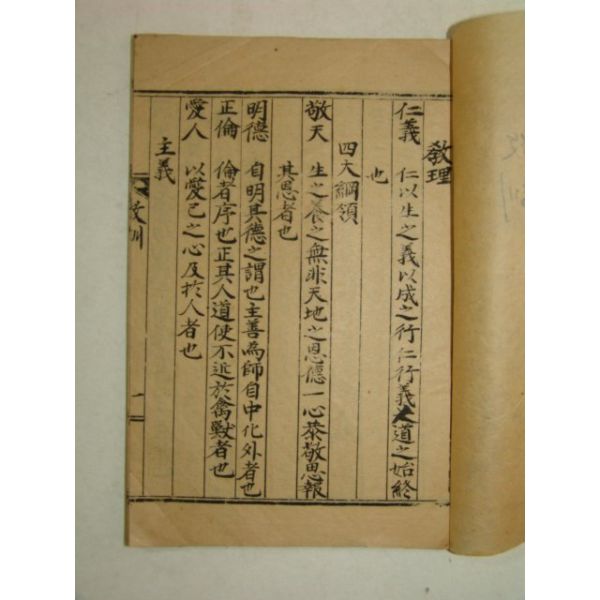 教理
仁義 仁以生之義以成之行仁行義人道之始終
也
四大綱領
敬天 生之養之無非天地之恩德一心恭敬思報
其恩者也
明德 自明其德之謂也主善為師自中化外者也
正倫 倫者序也正其人道使不近於禽獸者也
愛人 以愛己之心及於人者也
主義
教訓
一